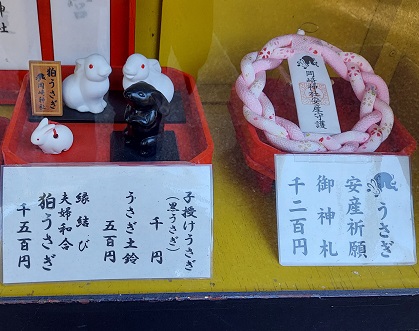 神社
狛うさぎ
岡崎神社
岡崎神社安産守護
子授けうさぎ
(黒うさぎ)
千円
うさぎ土鈴
五百円
縁結び
夫婦和合
狛うさぎ
千五百円
うさぎ
安産祈願
御神札
千二百円